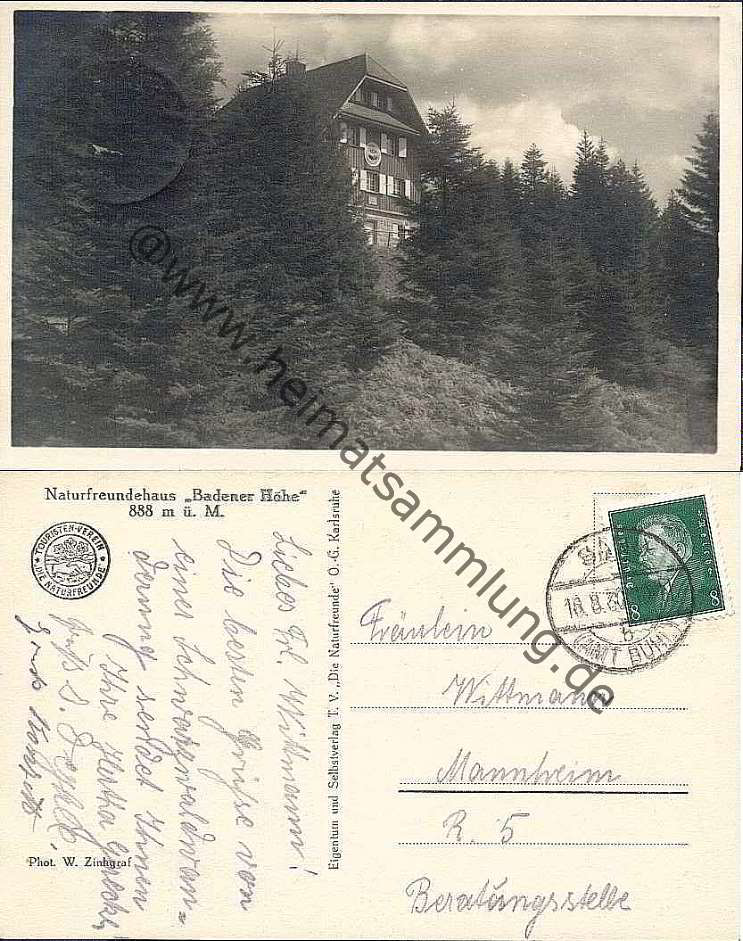 @www.heimatsammlung.de
Naturfreundehaus „Badener Höhe“
888 m ü. M.
TOURISTEN-VEREIN
"DIE NATURFREUNDE"
Liebes Frl. Wittmann!
Die besten Grüsse von
einer Schwarzwaldwan=
derung sendet Ihnen
Ihre Hertha
Gruß
Phot. W. Zinkgraf
Eigentum und Selbstverlag T. V. „Die Naturfreunde“ O.-G. Karlsruhe
8 8
(AMT BÜHL)
Fräulein
Wittmann
Mannheim
R. 5
Beratungsstelle